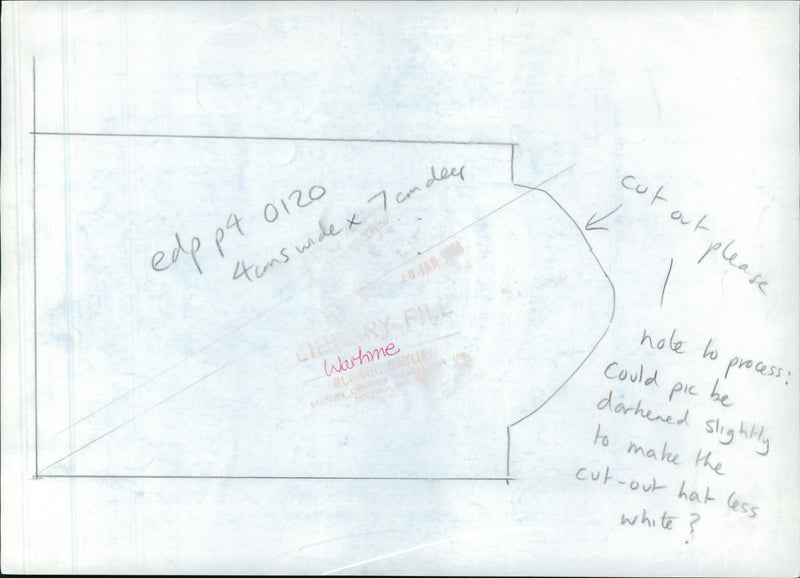 edp p4 0120
4cms wide x 7cm deep
cut out
please
LIBRARY FILE
Wartime
PLEASE RETURN
note to process:
Could pic be
darkened slightly
to make the
cut-out hat less
white?